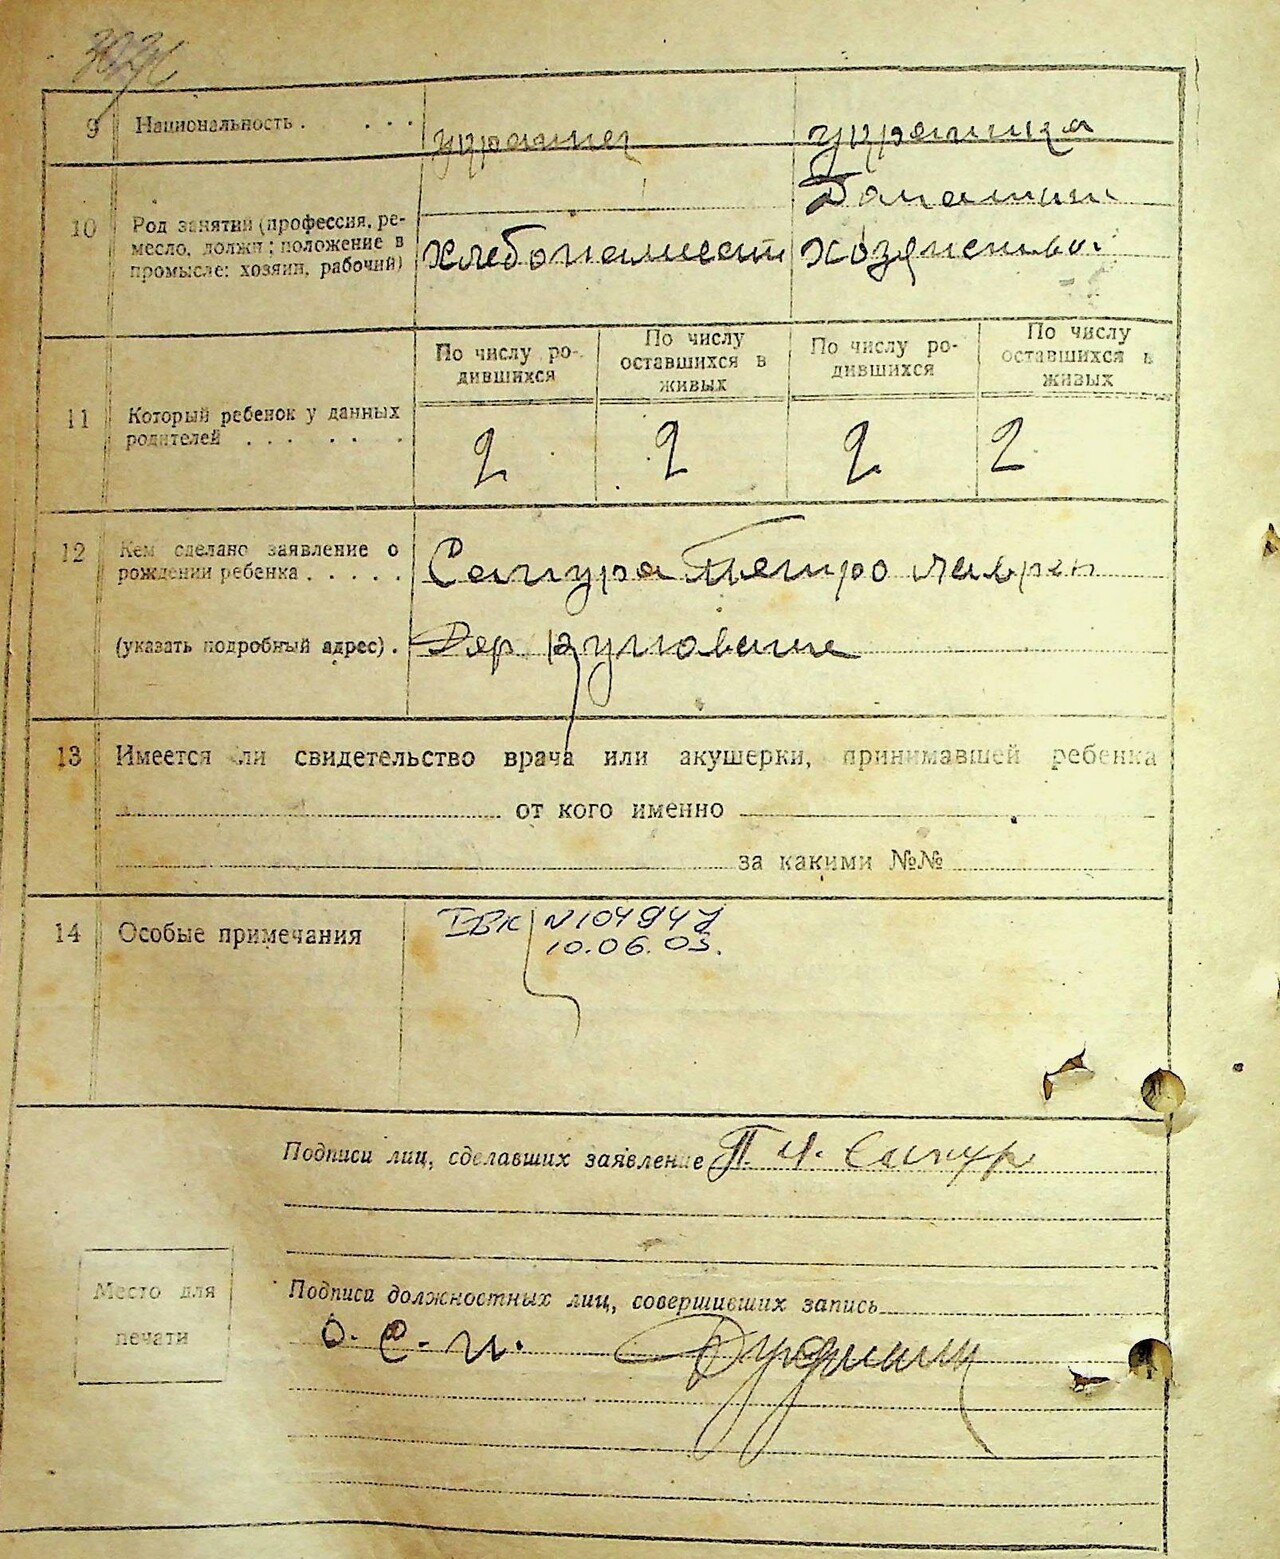 9 Национальность . . . . украинец украинка
10 Род занятий (профессия, ре-
месло, должн; положение в
промысле: хозяин, рабочий)
Домашнее
хлебопашест хозяйство.
По числу ро-
дившихся
По числу
оставшихся в
живых
По числу ро-
дившихся
По числу
оставшихся в
живых
11 Который ребенок у данных
родителей . . . . . . .
2 2 2 2
12 Кем сделано заявление о
рождении ребенка . . . . .
Петро
(указать подробный адрес) . Дер
13 Имеется ли свидетельство врача или акушерки, принимавшей ребенка
от кого именно
за какими №№
14 Особые примечания
10.06.03.
Подписи лиц, сделавших заявление П.
Место для
печати
Подписи должностных лиц, совершивших запись